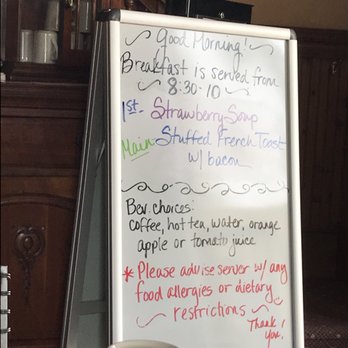 Good Morning!
Breakfast is served from
8:30-10
1st- Strawberry Soup
Main- Stuffed French Toast
w/ bacon
Bev. choices:
coffee, hot tea, water, orange
apple or tomato juice
* Please advise server w/ any
food allergies or dietary
restrictions
Thank
you.